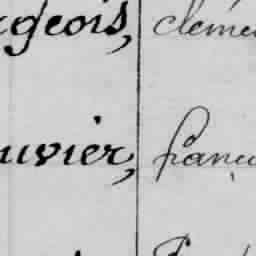 geois, cléme
uvier, françu